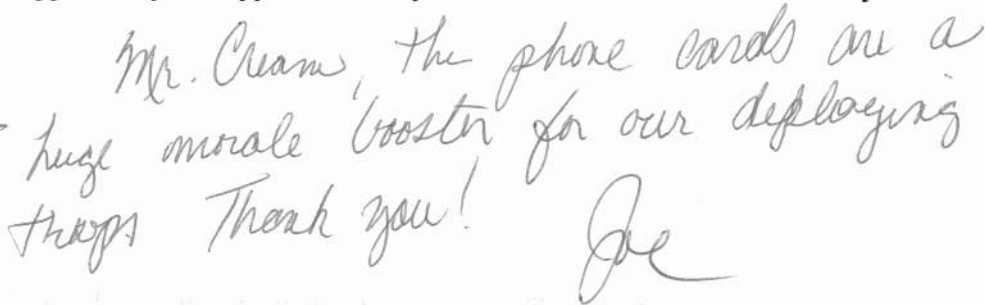 Mr. Cream, the phone cards are a
huge morale booster for our deploying
troops Thank you!
Joe